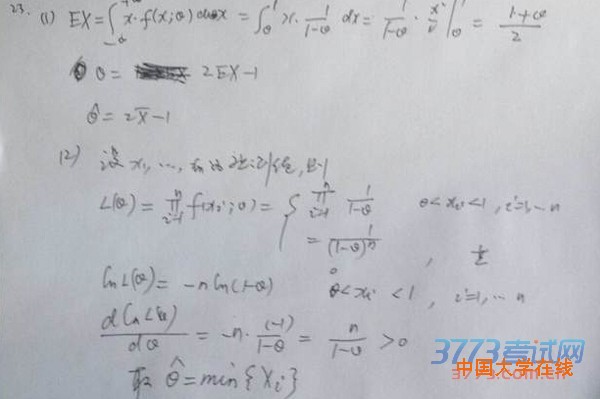 23. (1) EX = ∫_{-∞}^{+∞} x·f(x;θ)dx = ∫_θ^1 x·1/(1-θ) dx = 1/(1-θ)·x²/2 |_θ^1 = (1+θ)/2
θ = 2EX-1
θ̂ = 2X̄-1
(2) 设 x₁, …, 则
L(θ) = ∏_{i=1}^n f(xᵢ;θ) = { ∏_{i=1}^n 1/(1-θ) θ<xᵢ<1, i=1,…n
= 1/(1-θ)^n ,
0
ln L(θ) = -n ln(1-θ) θ<xᵢ<1, i=1,…n
d ln L(θ)/dθ = -n·(-1)/(1-θ) = n/(1-θ) >0
取 θ̂ = min{Xᵢ}
3773考试网
中国大学在线